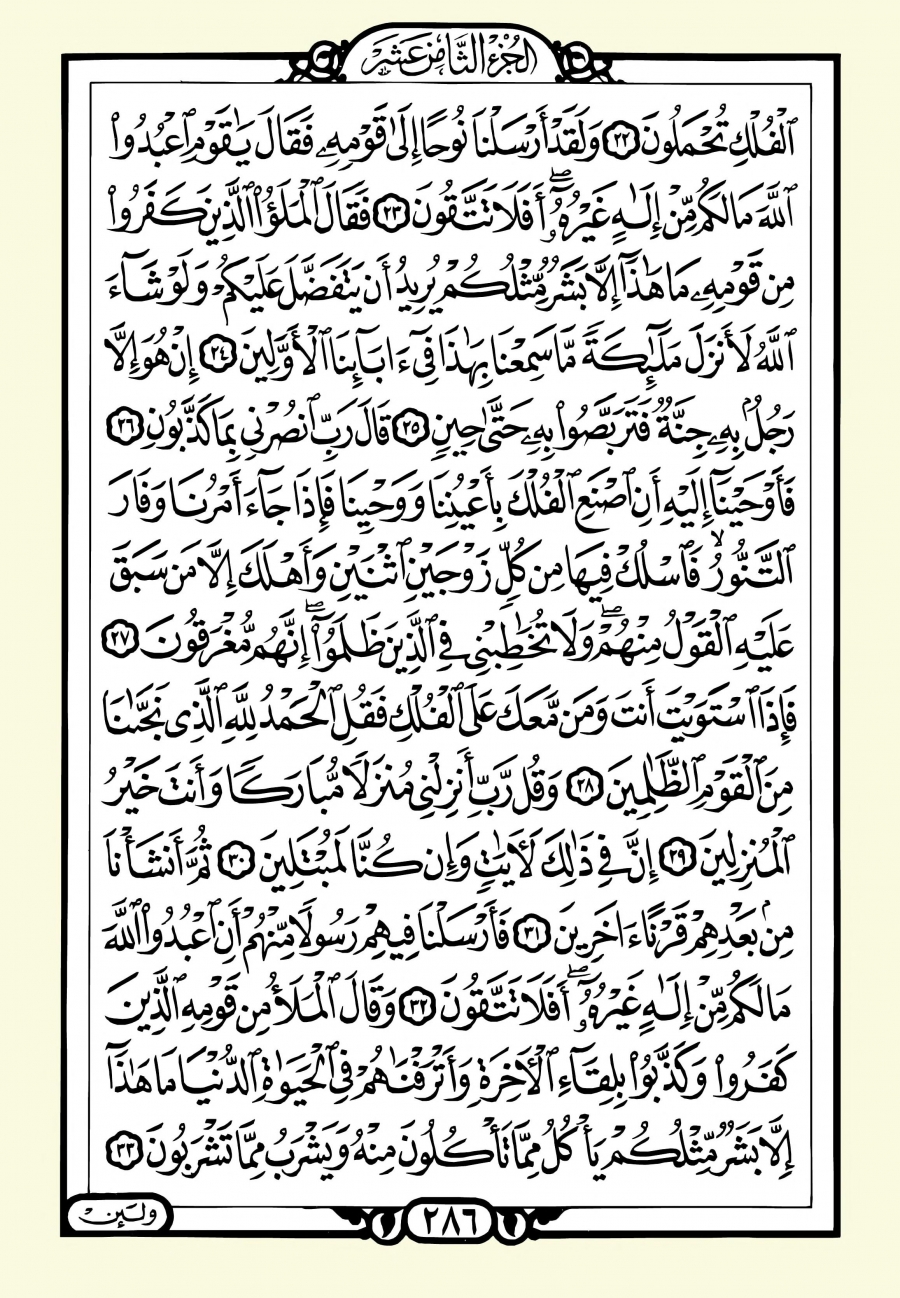 الجُزْءُ الثَّامِنْ عَشَرْ
ٱلْفُلْكِ تُحْمَلُونَ ٢٢ وَلَقَدْ أَرْسَلْنَا نُوحًا إِلَىٰ قَوْمِهِۦ فَقَالَ يَـٰقَوْمِ ٱعْبُدُوا۟
ٱللَّهَ مَا لَكُم مِّنْ إِلَـٰهٍ غَيْرُهُۥٓ ۖ أَفَلَا تَتَّقُونَ ٢٣ فَقَالَ ٱلْمَلَؤُا۟ ٱلَّذِينَ كَفَرُوا۟
مِن قَوْمِهِۦ مَا هَـٰذَآ إِلَّا بَشَرٌ مِّثْلُكُمْ يُرِيدُ أَن يَتَفَضَّلَ عَلَيْكُمْ وَلَوْ شَآءَ
ٱللَّهُ لَأَنزَلَ مَلَـٰٓئِكَةً مَّا سَمِعْنَا بِهَـٰذَا فِىٓ ءَابَآئِنَا ٱلْأَوَّلِينَ ٢٤ إِنْ هُوَ إِلَّا
رَجُلٌۢ بِهِۦ جِنَّةٌ فَتَرَبَّصُوا۟ بِهِۦ حَتَّىٰ حِينٍ ٢٥ قَالَ رَبِّ ٱنصُرْنِى بِمَا كَذَّبُونِ ٢٦
فَأَوْحَيْنَآ إِلَيْهِ أَنِ ٱصْنَعِ ٱلْفُلْكَ بِأَعْيُنِنَا وَوَحْيِنَا فَإِذَا جَآءَ أَمْرُنَا وَفَارَ
ٱلتَّنُّورُ ۙ فَٱسْلُكْ فِيهَا مِن كُلٍّ زَوْجَيْنِ ٱثْنَيْنِ وَأَهْلَكَ إِلَّا مَن سَبَقَ
عَلَيْهِ ٱلْقَوْلُ مِنْهُمْ ۖ وَلَا تُخَـٰطِبْنِى فِى ٱلَّذِينَ ظَلَمُوٓا۟ ۖ إِنَّهُم مُّغْرَقُونَ ٢٧
فَإِذَا ٱسْتَوَيْتَ أَنتَ وَمَن مَّعَكَ عَلَى ٱلْفُلْكِ فَقُلِ ٱلْحَمْدُ لِلَّهِ ٱلَّذِى نَجَّىٰنَا
مِنَ ٱلْقَوْمِ ٱلظَّـٰلِمِينَ ٢٨ وَقُل رَّبِّ أَنزِلْنِى مُنزَلًا مُّبَارَكًا وَأَنتَ خَيْرُ
ٱلْمُنزِلِينَ ٢٩ إِنَّ فِى ذَٰلِكَ لَـَٔايَـٰتٍ وَإِن كُنَّا لَمُبْتَلِينَ ٣٠ ثُمَّ أَنشَأْنَا
مِنۢ بَعْدِهِمْ قَرْنًا ءَاخَرِينَ ٣١ فَأَرْسَلْنَا فِيهِمْ رَسُولًا مِّنْهُمْ أَنِ ٱعْبُدُوا۟ ٱللَّهَ
مَا لَكُم مِّنْ إِلَـٰهٍ غَيْرُهُۥٓ ۖ أَفَلَا تَتَّقُونَ ٣٢ وَقَالَ ٱلْمَلَأُ مِن قَوْمِهِ ٱلَّذِينَ
كَفَرُوا۟ وَكَذَّبُوا۟ بِلِقَآءِ ٱلْـَٔاخِرَةِ وَأَتْرَفْنَـٰهُمْ فِى ٱلْحَيَوٰةِ ٱلدُّنْيَا مَا هَـٰذَآ
إِلَّا بَشَرٌ مِّثْلُكُمْ يَأْكُلُ مِمَّا تَأْكُلُونَ مِنْهُ وَيَشْرَبُ مِمَّا تَشْرَبُونَ ٣٣
ولَئِنْ
٢٨٦